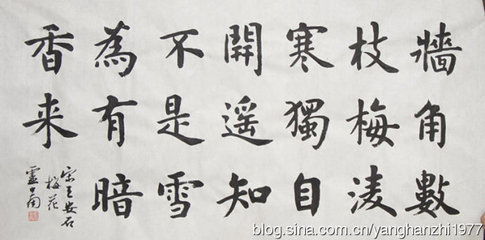 牆角數
枝梅凌
寒獨自
開遥知
不是雪
為有暗
香来
宋王安石
梅花
blog.sina.com.cn/yanghanzhi1977